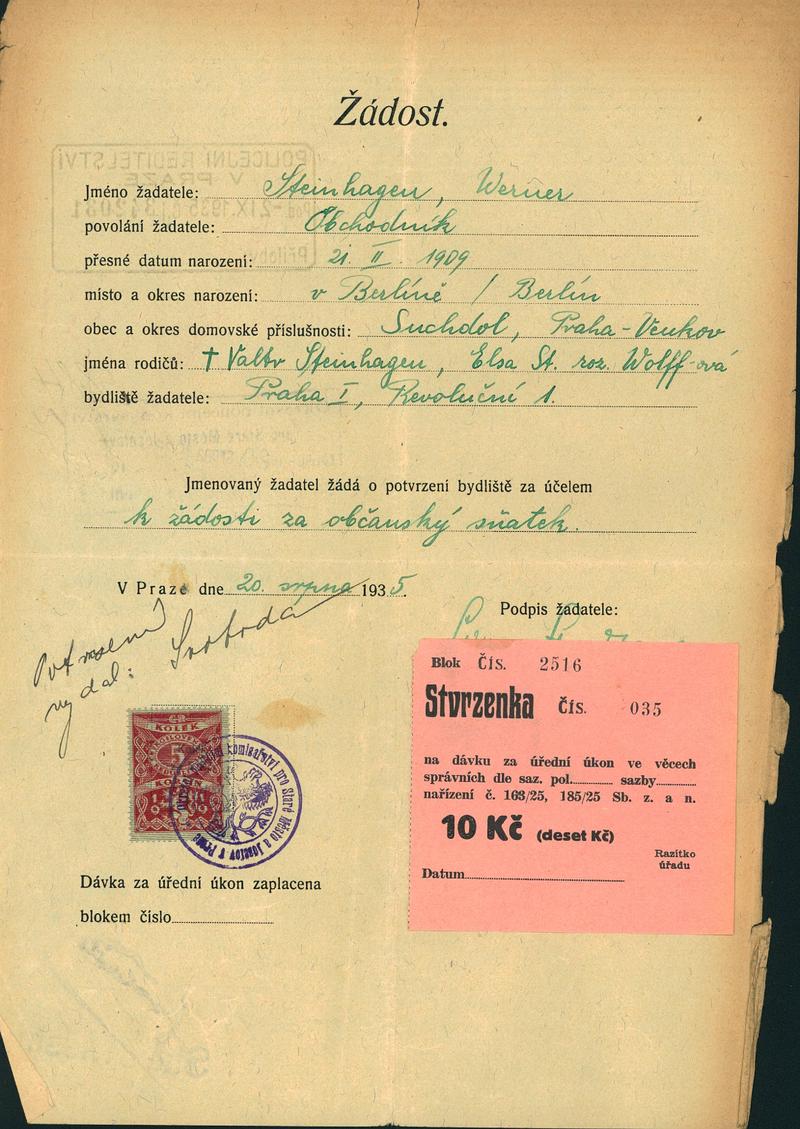 Žádost.
Jméno žadatele: Steinhagen, Werner
povolání žadatele: Obchodník
přesné datum narození: 21. II. 1909
místo a okres narození: v Berlíně / Berlín
obec a okres domovské příslušnosti: Suchdol, Praha-Venkov
jména rodičů: † Valtr Steinhagen, Elsa St. roz. Wolff-ová
bydliště žadatele: Praha I, Revoluční 1.
Jmenovaný žadatel žádá o potvrzení bydliště za účelem
k žádosti za občanský sňatek.
V Praze dne 20. srpna 1935.
Podpis žadatele:
Potvrzení
vydal: Svoboda
Blok Čís. 2516
Stvrzenka Čís. 035
na dávku za úřední úkon ve věcech
správních dle saz. pol. sazby
nařízení č. 163/25, 185/25 Sb. z. a n.
10 Kč (deset Kč)
Razítko
úřadu
Datum
KOLEK
5
komisařství pro Staré Město a Josefov v Praze
Dávka za úřední úkon zaplacena
blokem číslo